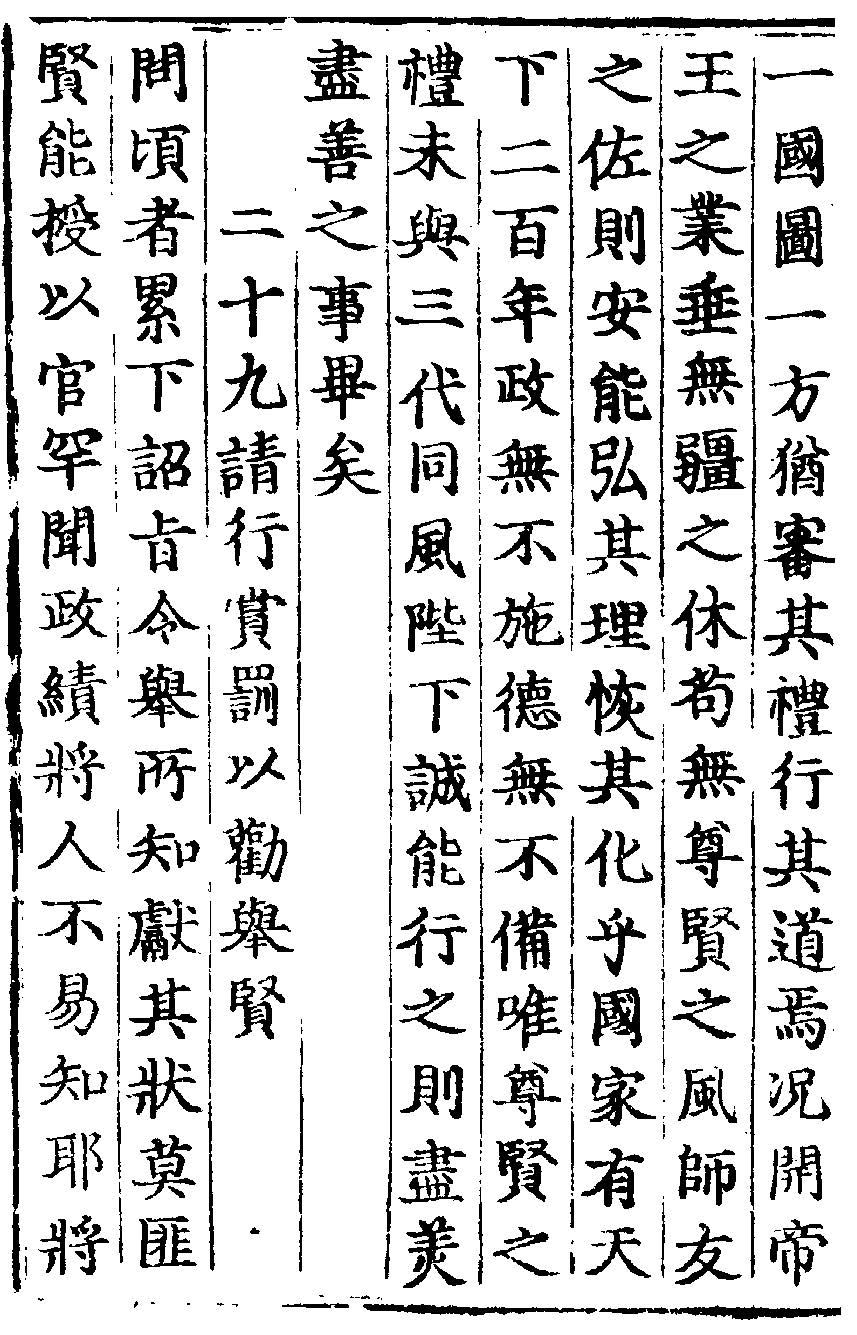 一國圖一方猶審其禮行其道焉况開帝
王之業垂無疆之休苟無尊賢之風師友
之佐則安能弘其理恢其化乎國家有天
下二百年政無不施德無不備唯尊賢之
禮未與三代同風陛下誠能行之則盡美
盡善之事畢矣
二十九請行賞罰以勸舉賢
問頃者累下詔旨令舉所知獻其狀莫匪
賢能授以官罕聞政績將人不易知耶將